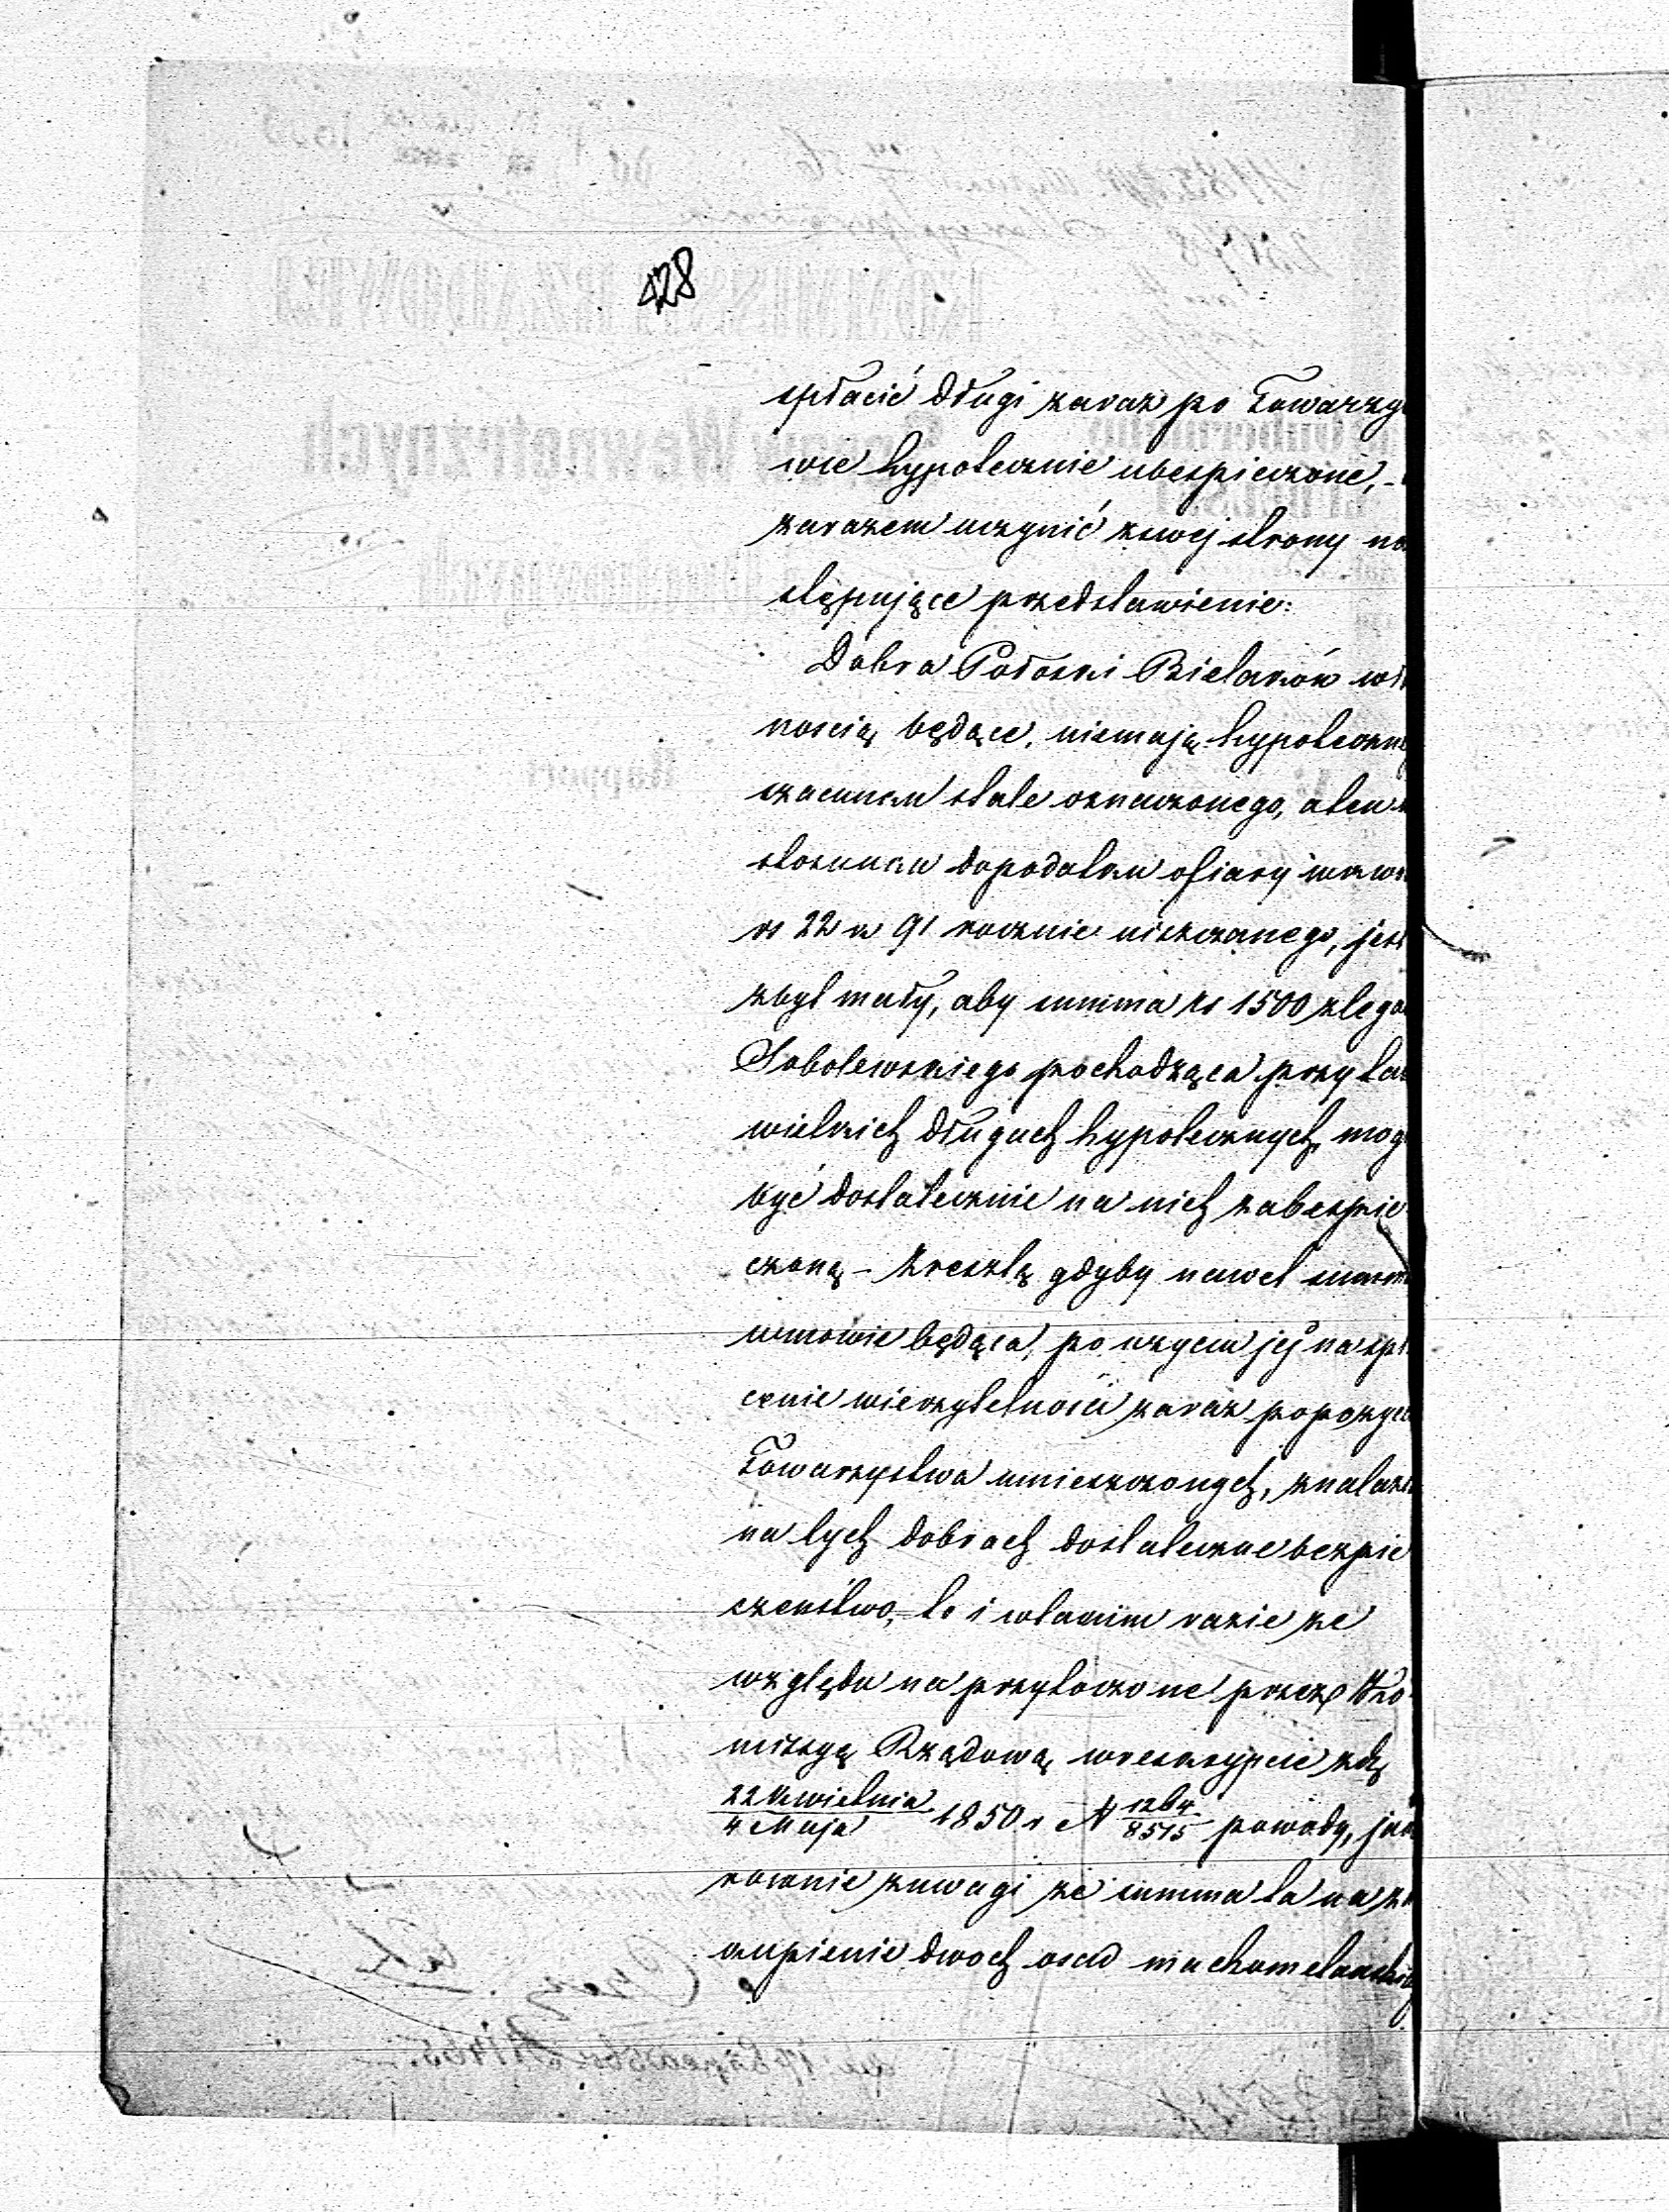 428
spłacić długi zaraz po Towarzy
wie hypotecznie ubespieczone, -
zarazem uczynić zswej strony na
stępujące przedstawienie:
Dobra Podoski Bielaków wł
nością będące, niemają hypoteczne
szacunku stale oznaczonego, aten z
stosunku dopodatku ofiary
rs 22 k 91 rocznie uiszczanego, jest
zbyt mały, aby summa rs 1500 zlega
Sobolewskiego pochodząca przy tak
wielkich długach hypotecznych, mog
być dostatecznie na nich zabespie
czoną - Zresztą gdyby nawet summ
wmowie będąca, po użyciu jej na spł
cenie wierzytelności zaraz popożycz
Towarzystwa umieszczonych, znalaz
na tych dobrach dostateczne bezpie
czeństwo, - to i wtakim razie ze
względu na przytoczone przez Ko
missyą Rządową wreskrypcie zdt
22 Kwietnia
4 Maja 1850 r N 1264/8515 powody, jak
równie zuwagi że summa ta na za
kupienie dwoch osad